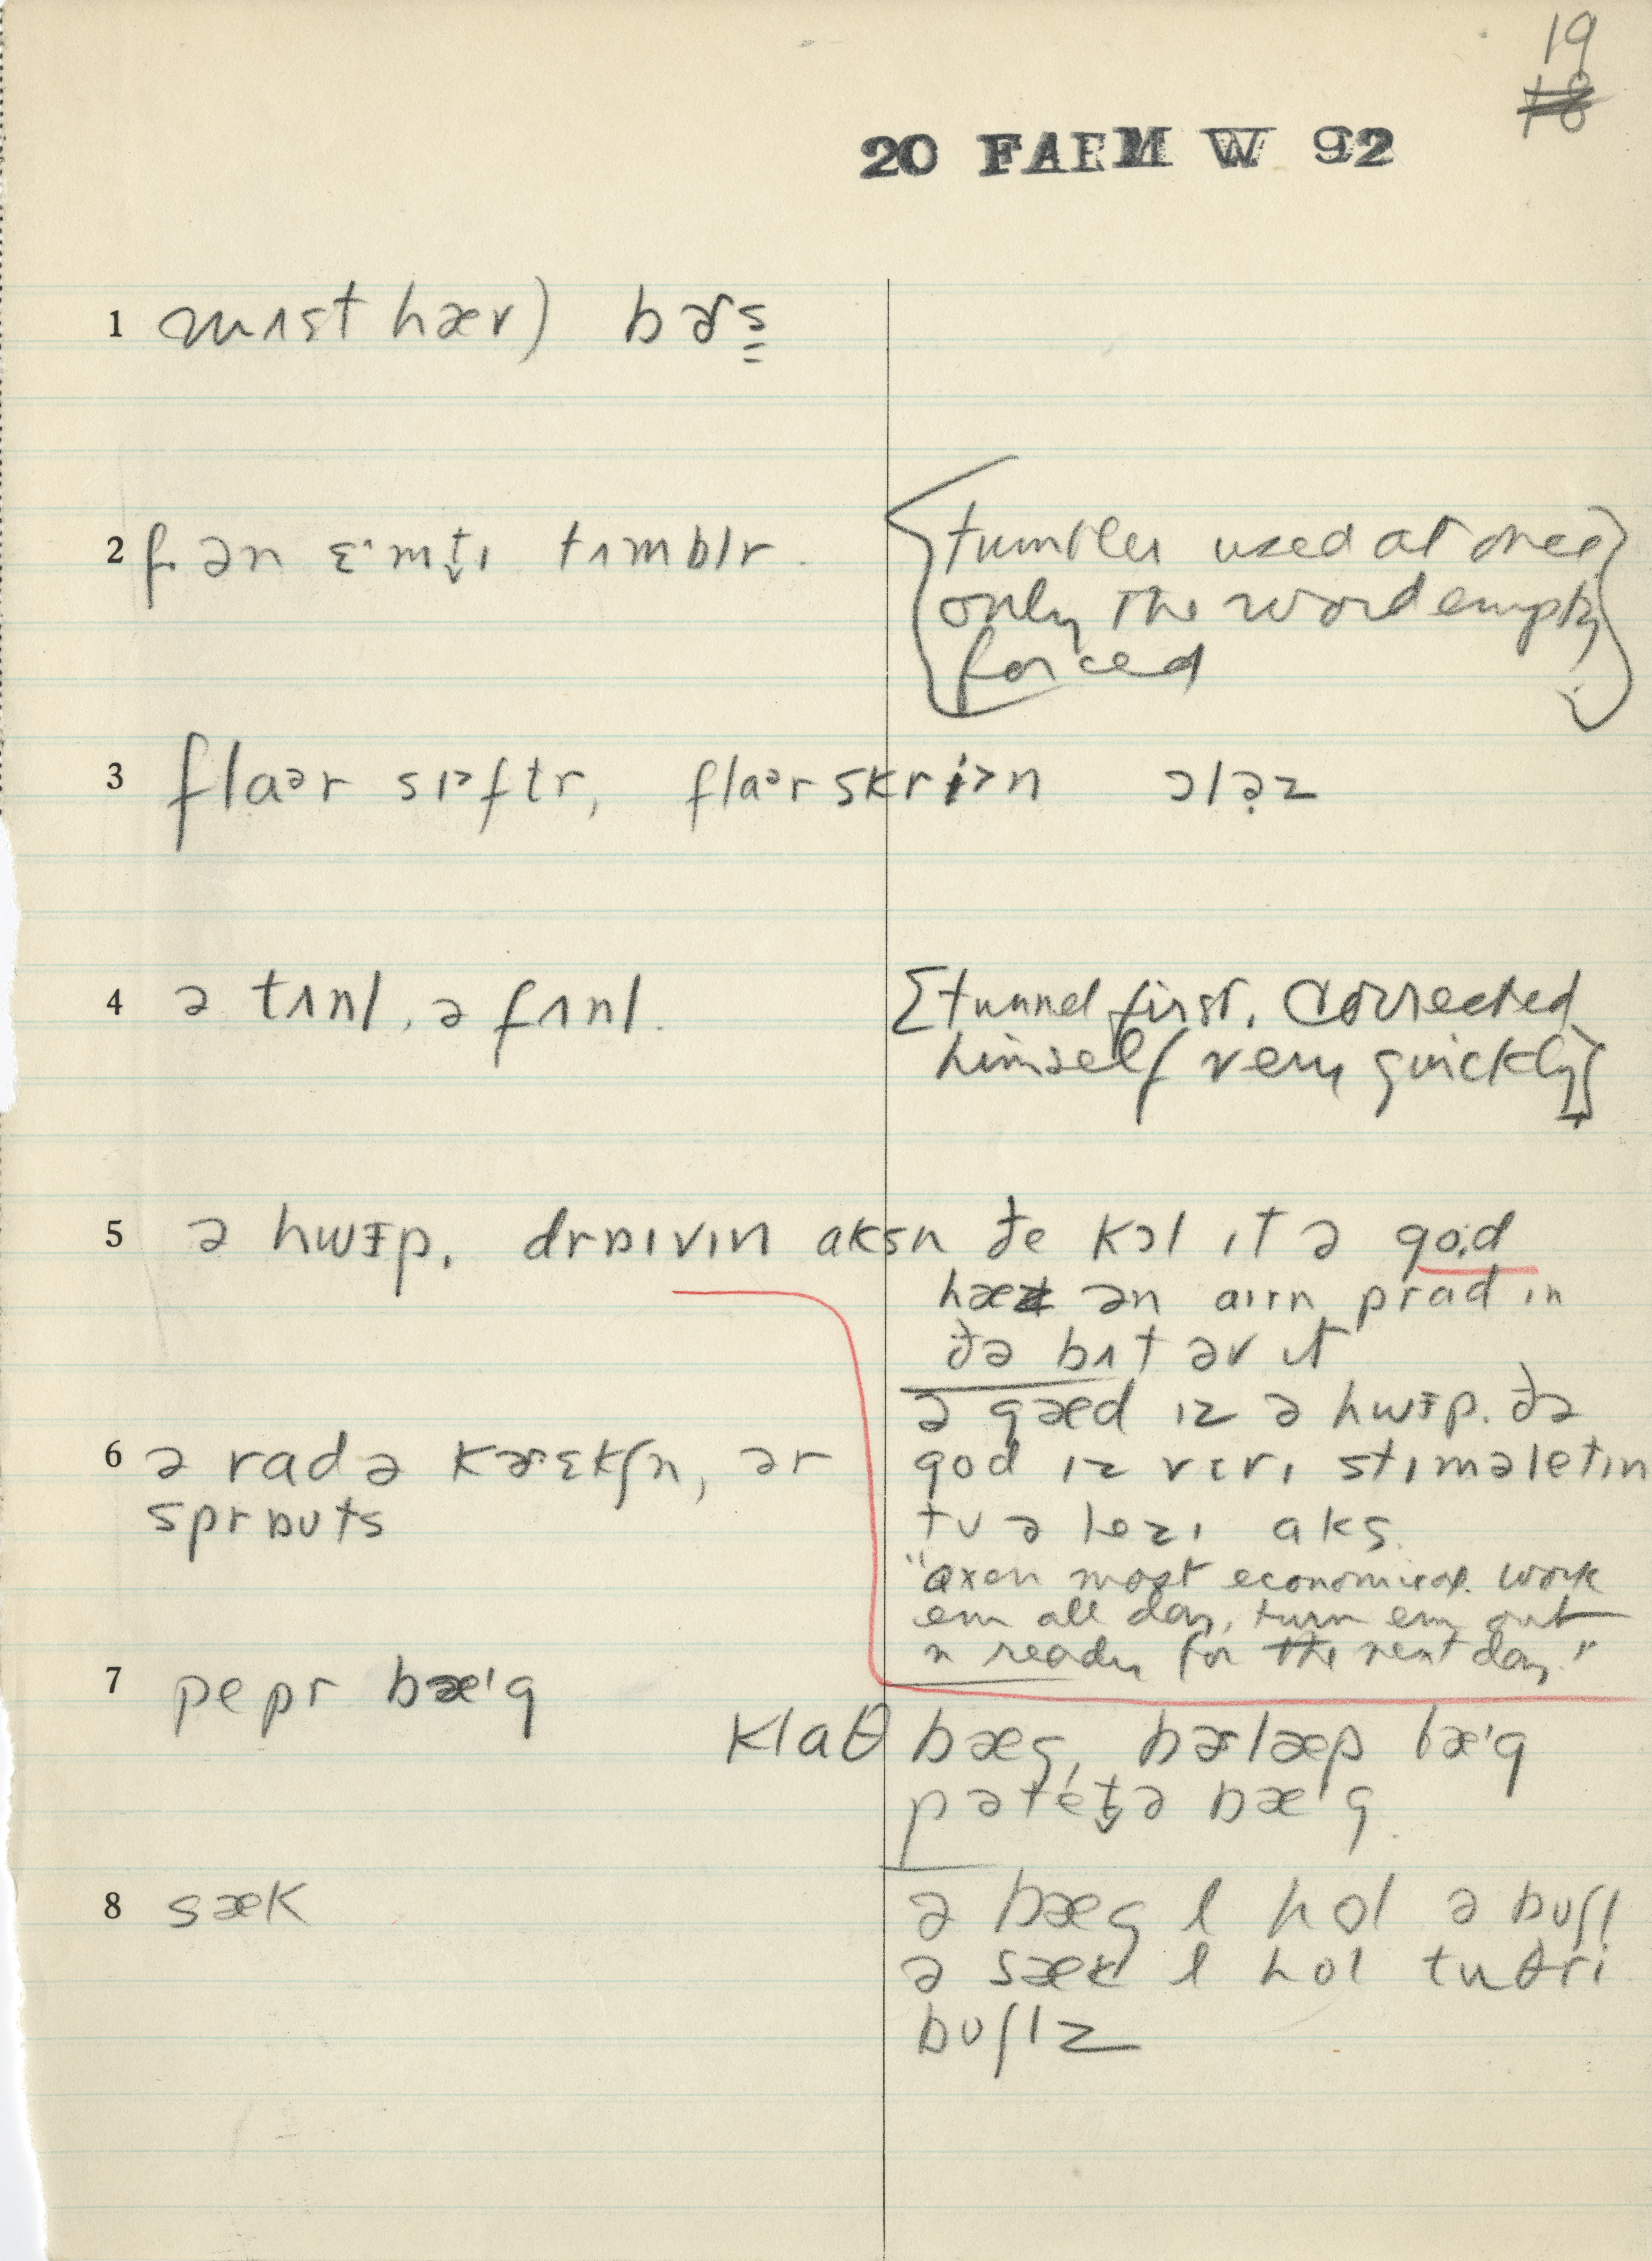 19
18
20 FARM W 92
1 mʌst hæv) bɚs̳
2 f. ən ɛ·mt̬ɪ tʌmblr.
tumbler used at once
only the word empty
forced
3 flaᵊr sɪ>ftr, flaᵊr skri>n ɔlə̣z
4 ə tʌnl, ə fʌnl.
[tunnel first. Corrected
himself very quickly]
5 ə hwɪp. drɒɪvɪn aksn ðe kɔl ɪt ə god
hæz ən aɪrn prad ɪn
ðə bʌt əv ɪt
ə gæd ɪz ə hwɪp. ðə
god ɪz vɛrɪ stɪməletɪn
tʊ ə lezɪ aks.
6 ə rad ə kɚɛkʃn, ər
sprɒʊts
"oxen most economical. work
em all day, turn em out
n ready for the next day."
7 pepr bæ'g
klaθ bæg, bɚlæp bæ'g
pətét̬ə bæ'g
8 sæk
ə bæg l hol ə bʊʃl
ə sæk l hol tu θri
bʊʃlz